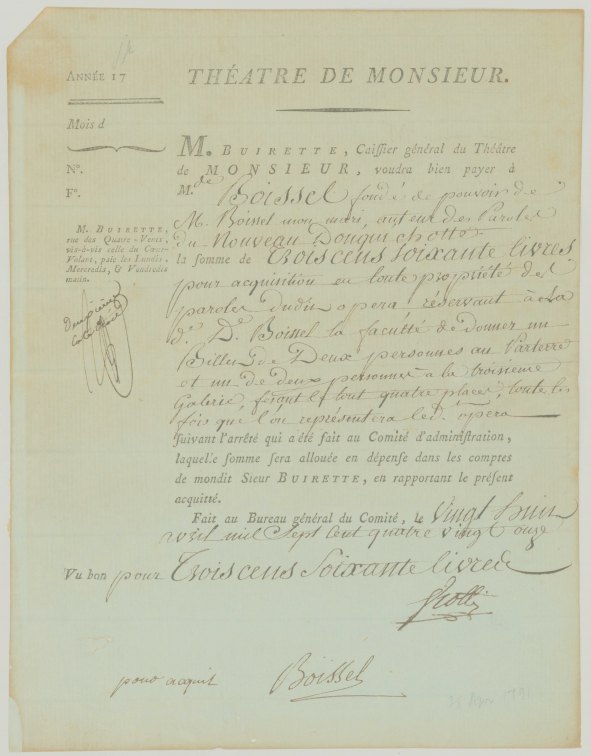 ANNÉE 17
THÉATRE DE MONSIEUR.
Mois d
N°.
F°.
M. BUIRETTE,
rue des Quatre-Vents,
vis-à-vis celle du Cœur-
Volant, paie les Lundis,
Mercredis, & Vendredis
matin.
M. BUIRETTE, Caissier général du Théâtre
de MONSIEUR, voudra bien payer à
M.de Boissel fondé de pouvoir de
M. Boissel mon mari, auteur des Paroles
du Nouveau Donquichotte
la somme de Trois cens soixante livres
pour acquisition en toute propriété des
paroles dudit opera, réservant à la
de. De. Boissel la faculté de donner un
Billet de Deux personnes au Parterre
et un de deux personnes à la troisieme
Galerie, feront le tout quatre places, toute les
fois que l'on représentera led. opera
suivant l'arrêté qui a été fait au Comité d'administration,
laquelle somme sera allouée en dépense dans les comptes
de mondit Sieur BUIRETTE, en rapportant le présent
acquitté.
Fait au Bureau général du Comité, le Vingt huit
avril mil Sept cent quatre vingt onze
Vu bon pour Trois cens soixante livres
pour acquit Boissel